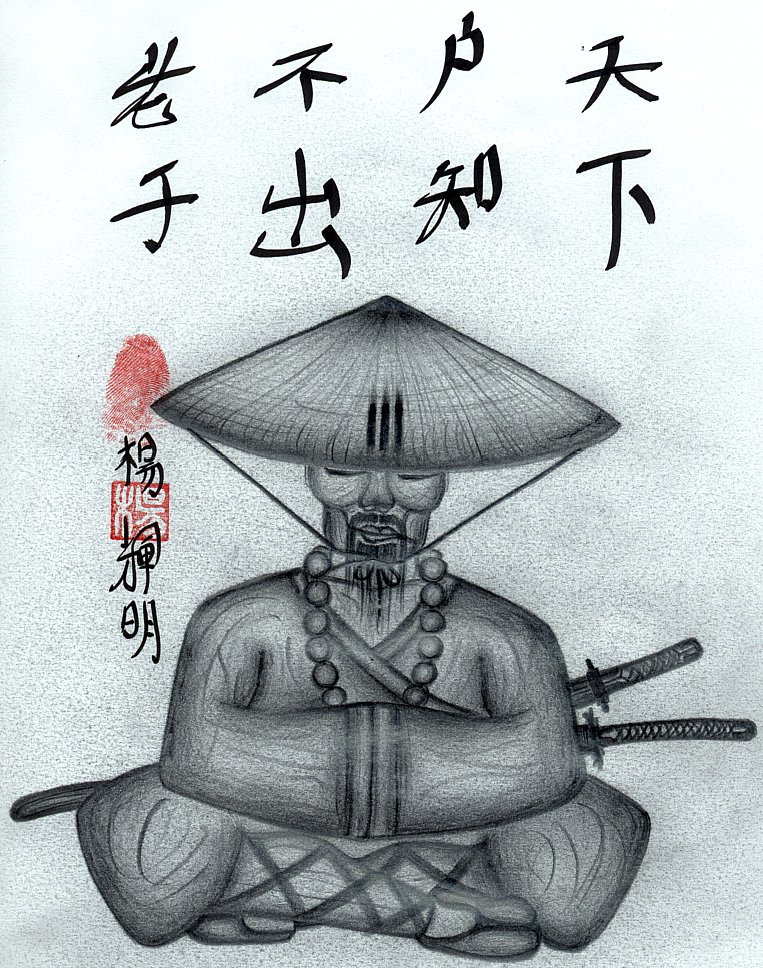 老子
不出
户知
天下
楊輝明